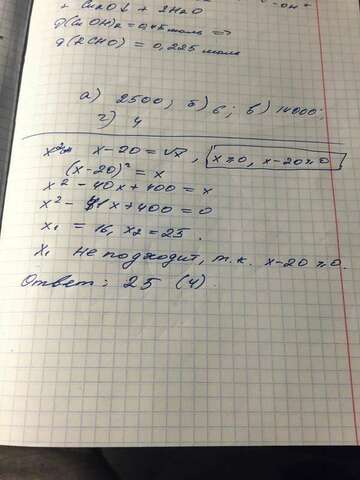 + Cu2O↓ + 2H2O
ϑ(Cu OH)2 = 0,45 моль =>
ϑ(RCHO) = 0,225 моль
а) 2500; б) 6; в) 14000;
г) 4
x-20 = √x, x≥0, x-20≥0
(x-20)² = x
x² - 40x + 400 = x
x² - 41x + 400 = 0
x₁ = 16, x₂ = 25.
x₁ не подходит, т.к. x-20≥0.
Ответ: 25 (4)